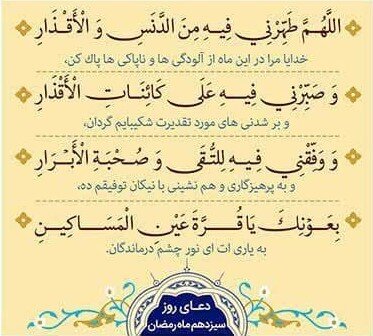 اللّهُمَّ طَهِّرْنِي فِيهِ مِنَ الدَّنَسِ وَ الْأَقْذَارِ
خدایا مرا در این ماه از آلودگی ها و ناپاکی ها پاک کن،
وَ صَبِّرْنِي فِيهِ عَلَى كَائِنَاتِ الْأَقْدَارِ
و بر شدنی های مورد تقدیرت شکیبایم گردان،
وَ وَفِّقْنِي فِيهِ لِلتُّقَى وَ صُحْبَةِ الْأَبْرَارِ
و به پرهیزگاری و هم نشینی با نیکان توفیقم ده،
بِعَوْنِكَ يَا قُرَّةَ عَيْنِ الْمَسَاكِينِ
به یاری ات ای نور چشم درماندگان.
دعای روز
سیزدهم ماه رمضان